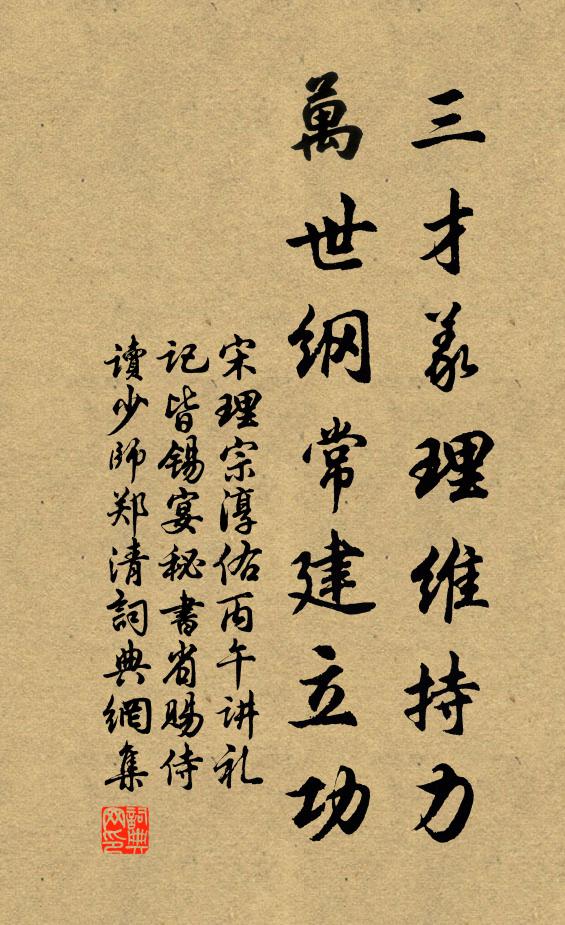 三才義理維持力
萬世纲常建立功
宋理宗淳佑丙午讲礼
记皆锡宴秘書省賜侍
讀少師郑清詞典網集
詞典网印